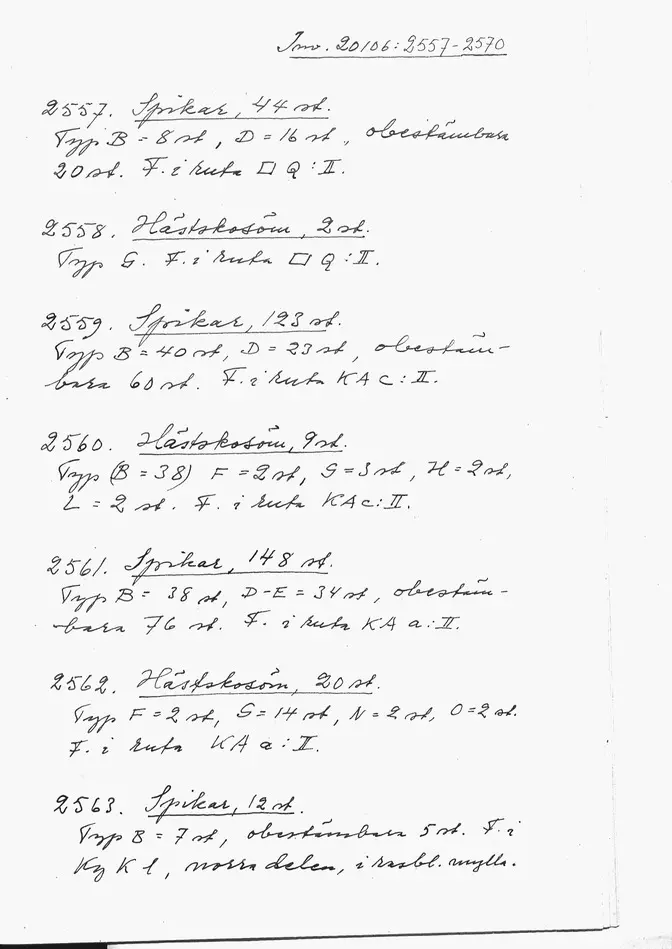 Inv. 20106:2557-2570
2557. Spikar, 44 st.
Typ B = 8 st, D = 16 st, obestämbara
20 st. F. i ruta □ Q:II.
2558. Hästskosöm, 2 st.
Typ G. F. i ruta □ Q:II.
2559. Spikar, 123 st.
Typ B = 40 st, D = 23 st, obestäm-
bara 60 st. F. i ruta KA c:II.
2560. Hästskosöm, 9 st.
Typ (B = 38) F = 2 st, G = 3 st, H = 2 st,
L = 2 st. F. i ruta KA c:II.
2561. Spikar, 148 st.
Typ B = 38 st, D-E = 34 st, obestäm-
bara 76 st. F. i ruta KA a:II.
2562. Hästskosöm, 20 st.
Typ F = 2 st, G = 14 st, N = 2 st, O = 2 st.
F. i ruta KA a:II.
2563. Spikar, 12 st.
Typ B = 7 st, obestämbara 5 st. F. i
Ky K l, norra delen, i rasbl. mylla.